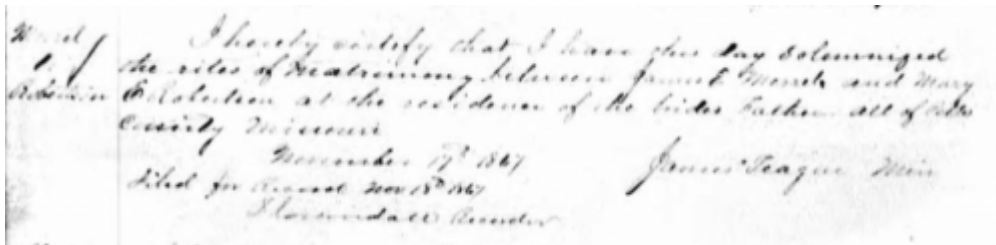 I hereby certify that I have this day Solemnized
the rites of Matrimony between James and Mary
Robertson at the residence of the brides Father all of
County Missouri
November 17th 1867
James Teague Min
Filed for Record Nov 18th 1867
Recorder